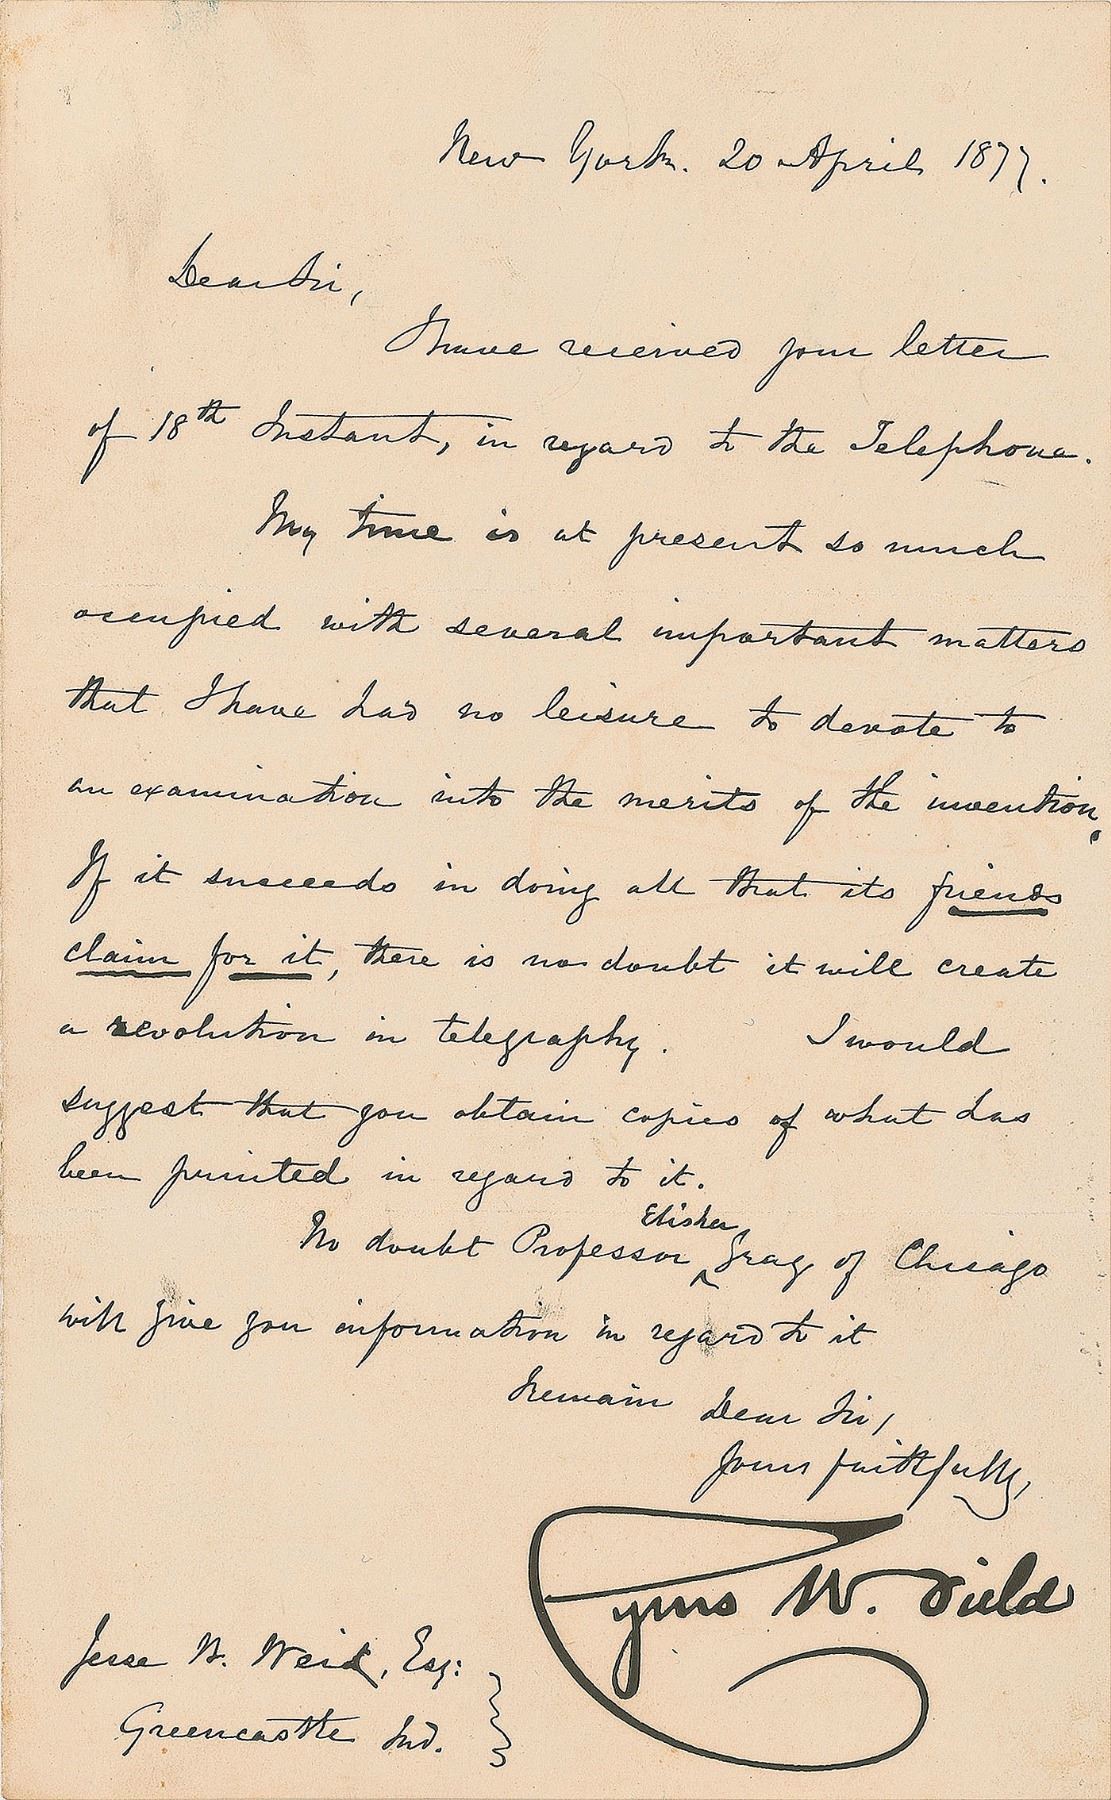 New York. 20 April 1877.
Dear Sir,
I have received your letter
of 18th Instant, in regard to the Telephone.
My time is at present so much
occupied with several important matters
that I have had no leisure to devote to
an examination into the merits of the invention.
If it succeeds in doing all that its friends
claim for it, there is no doubt it will create
a revolution in telegraphy. I would
suggest that you obtain copies of what has
been printed in regard to it.
Elisha
No doubt Professor ^ Gray of Chicago
will give you information in regard to it
I remain Dear Sir,
Yours faithfully,
Cyrus W. Field
Jesse W. Weik, Esq:
Greencastle Ind.